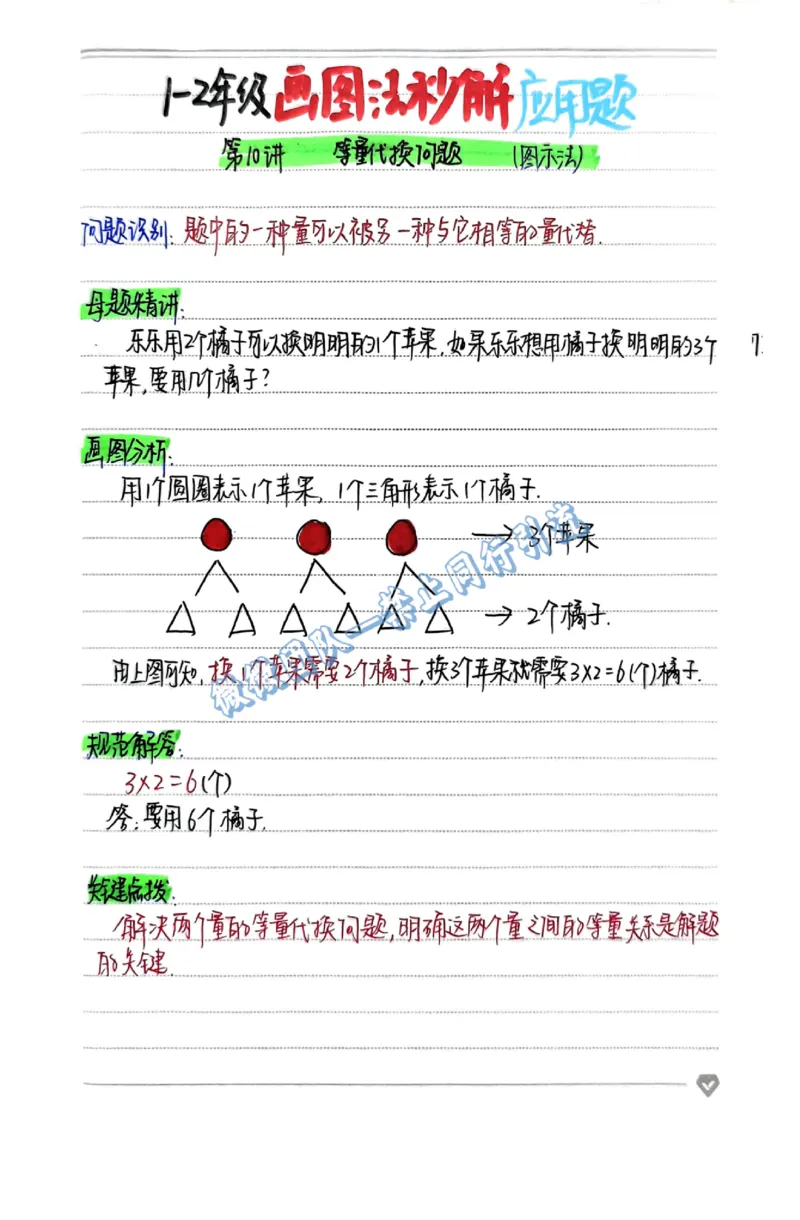 1-2年级画图法秒解应用题
第10讲 等量代换问题 (图示法)
问题识别: 题中的一种量可以被另一种与它相等的量代替.
母题精讲:
乐乐用2个橘子可以换明明的1个苹果,如果乐乐想用橘子换明明的3个
苹果,要用几个橘子?
画图分析:
用1个圆圈表示1个苹果, 1个三角形表示1个橘子.
→ 3个苹果
→ 2个橘子.
由上图可知,换1个苹果需要2个橘子,换3个苹果就需要3×2=6(个)橘子.
规范解答:
3×2=6(个)
答:要用6个橘子.
关键点拨:
解决两个量的等量代换问题,明确这两个量之间的等量关系是解题
的关键.